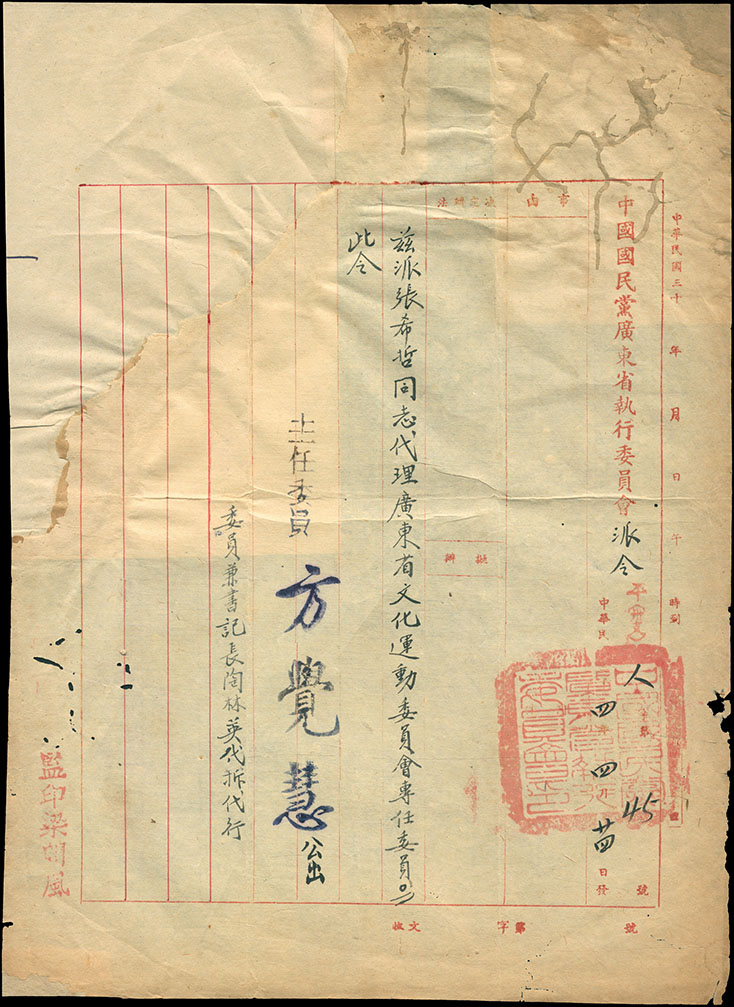 中華民國三十 年 月 日 午 時到
中國國民黨廣東省執行委員會派令
人 45 號
中華民 四 四 廿四 日發
事由
決定辦法
擬辦
茲派張希哲同志代理廣東省文化運動委員會專任委員。
此令
主任委員 方覺慧 公出
委員兼書記長陶林英代拆代行
監印梁
風
號
第
字
收文